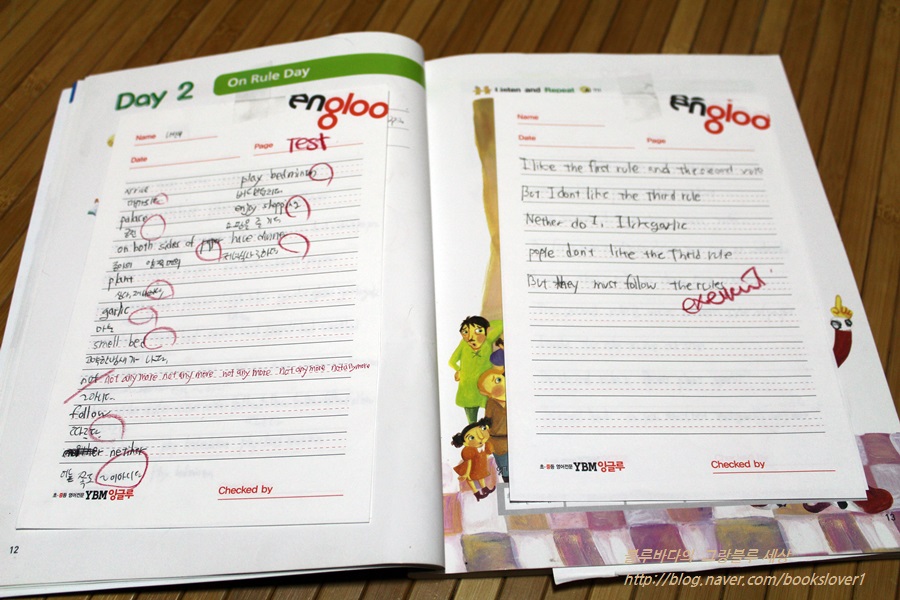 Day 2
On Rule Day
engloo
Name
Date
Page Test
play bedminton
palace
enjoy
on both sides of have dinner
plant
garlic
마늘
smell bed
고약한 냄새가 나다.
not not anymore not any more not any more not any more not anymore
follow
따르다
neither
초·중등 영어전문 YBM잉글루
Checked by
12
Listen and Repeat
engloo
Name
Date
Page
I like the first rule and the second rule
But I dont like the third rule
Nether do I, I like garlic
pople don't like the Thrid rule
But they must follow the rules
excellent
초·중등 영어전문 YBM잉글루
Checked by
13
블루바다의 그랑블루 세상
http://blog.naver.com/bookslover1